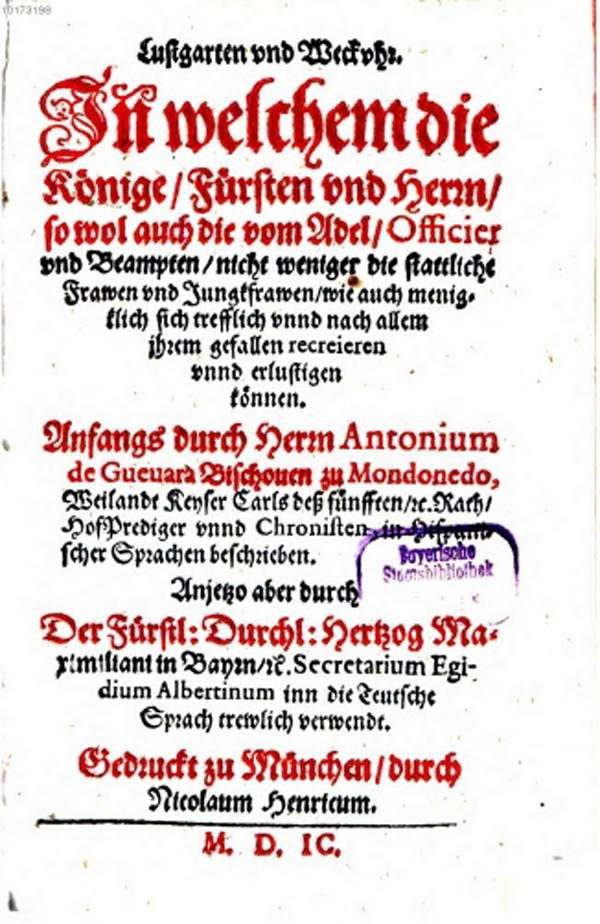 10173198
Lustgarten vnd Weckvhr.
In welchem die
Könige/ Fürsten vnd Herrn/
so wol auch die vom Adel/ Officier
vnd Beampten/ nicht weniger die stattliche
Frawen vnd Jungkfrawen/ wie auch menig-
klich sich trefflich vnnd nach allem
jhrem gefallen recreieren
vnnd erlustigen
können.
Anfangs durch Herrn Antonium
de Gueuara Bischouen zu Mondonedo,
Weilandt Keyser Carls deß fünfften/ ꝛc. Rath/
HofPrediger vnnd Chronisten, in Hispani-
scher Sprachen beschrieben.
Bayerische
Staatsbibliothek
Anjetzo aber durch
Der Fürstl: Durchl: Hertzog Ma-
ximiliani in Bayrn/ ꝛc. Secretarium Egi-
dium Albertinum inn die Teutsche
Sprach trewlich verwendt.
Gedruckt zu München/ durch
Nicolaum Henricum.
M. D. IC.